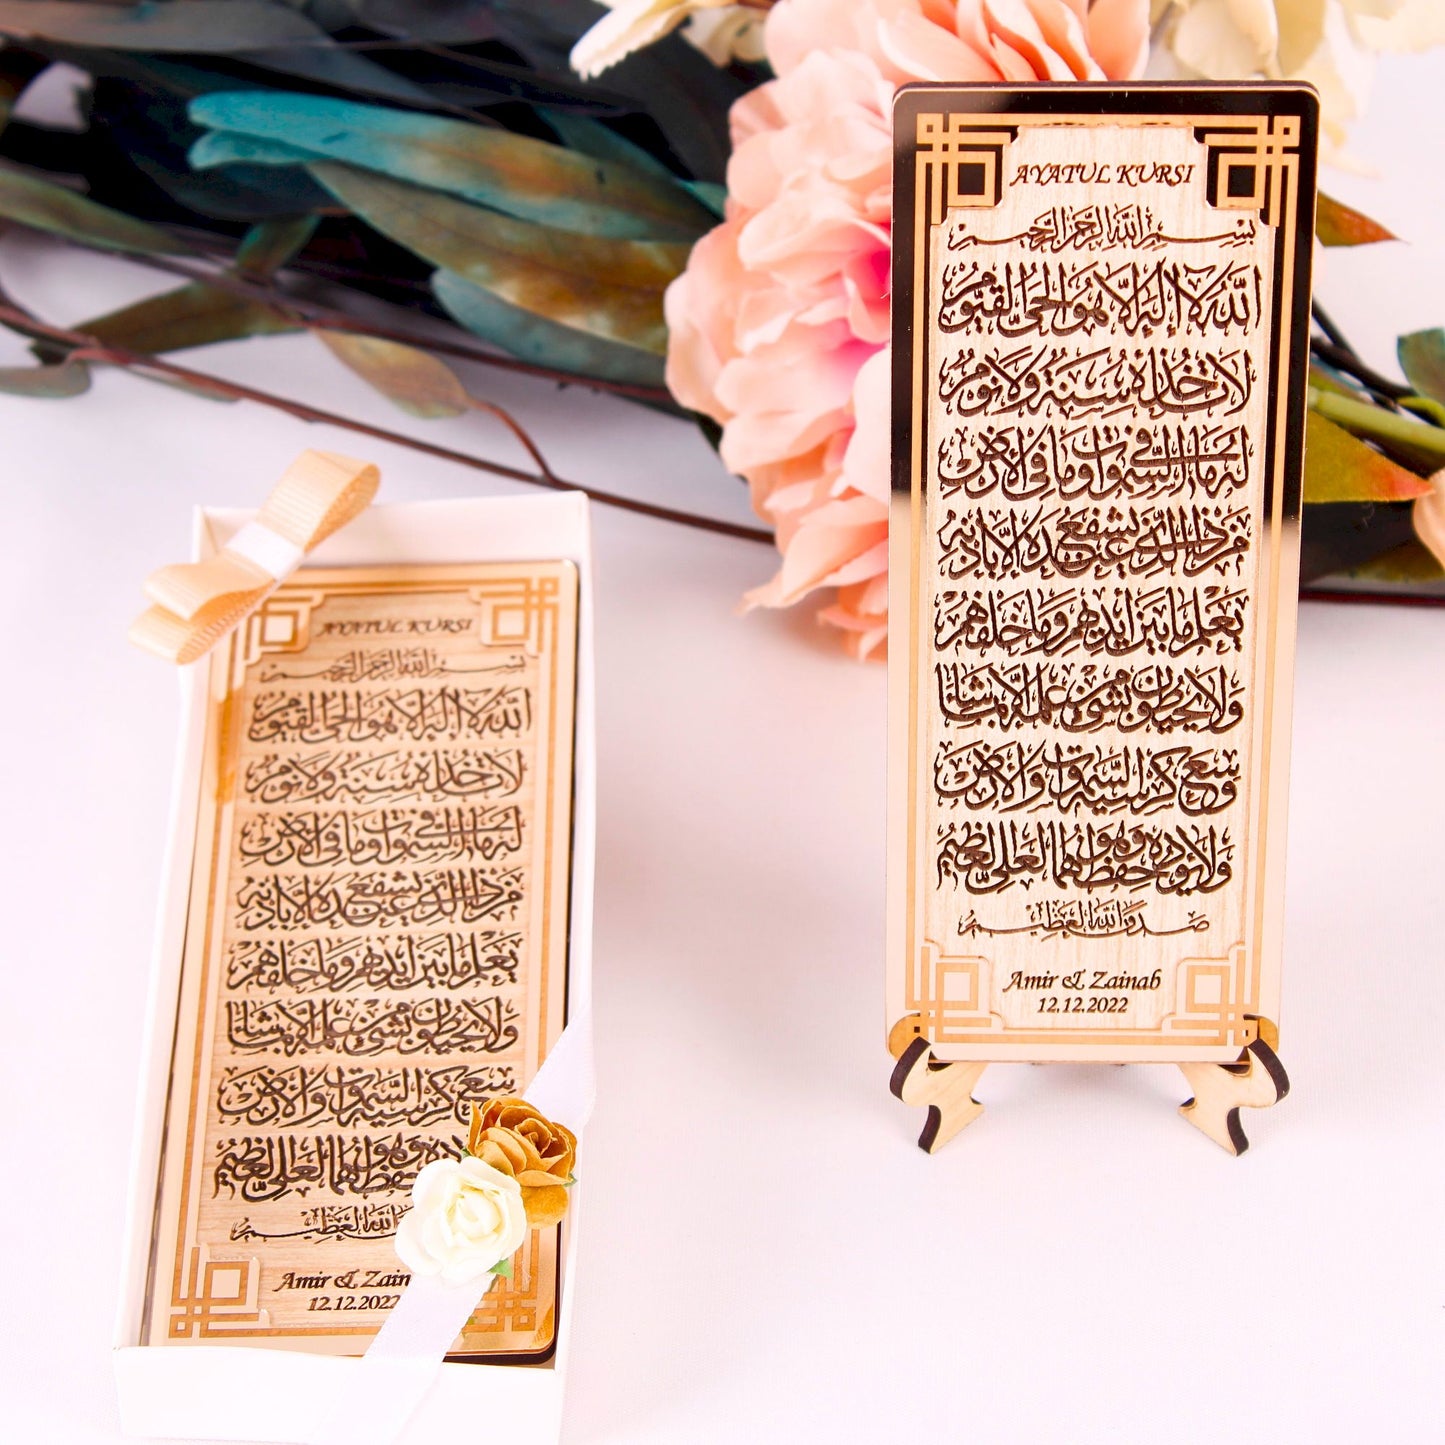 AYATUL KURSI
بِسْمِ اللهِ الرَّحْمٰنِ الرَّحِيمِ
اللهُ لَا إِلٰهَ إِلَّا هُوَ الْحَيُّ الْقَيُّومُ
لَا تَأْخُذُهُ سِنَةٌ وَلَا نَوْمٌ
لَهُ مَا فِي السَّمٰوَاتِ وَمَا فِي الْأَرْضِ
مَنْ ذَا الَّذِي يَشْفَعُ عِنْدَهُ إِلَّا بِإِذْنِهِ
يَعْلَمُ مَا بَيْنَ أَيْدِيهِمْ وَمَا خَلْفَهُمْ
وَلَا يُحِيطُونَ بِشَيْءٍ مِنْ عِلْمِهِ إِلَّا بِمَا شَاءَ
وَسِعَ كُرْسِيُّهُ السَّمٰوَاتِ وَالْأَرْضَ
وَلَا يَؤُودُهُ حِفْظُهُمَا وَهُوَ الْعَلِيُّ الْعَظِيمُ
صَدَقَ اللهُ الْعَظِيمُ
Amir & Zainab
12.12.2022
AYATUL KURSI
بِسْمِ اللهِ الرَّحْمٰنِ الرَّحِيمِ
اللهُ لَا إِلٰهَ إِلَّا هُوَ الْحَيُّ الْقَيُّومُ
لَا تَأْخُذُهُ سِنَةٌ وَلَا نَوْمٌ
لَهُ مَا فِي السَّمٰوَاتِ وَمَا فِي الْأَرْضِ
مَنْ ذَا الَّذِي يَشْفَعُ عِنْدَهُ إِلَّا بِإِذْنِهِ
يَعْلَمُ مَا بَيْنَ أَيْدِيهِمْ وَمَا خَلْفَهُمْ
وَلَا يُحِيطُونَ بِشَيْءٍ مِنْ عِلْمِهِ إِلَّا بِمَا شَاءَ
كُرْسِيُّهُ السَّمٰوَاتِ وَالْأَرْضَ
حِفْظُهُمَا وَهُوَ الْعَلِيُّ الْعَظِيمُ
اللهُ الْعَظِيمُ
Amir & Zain
12.12.2022